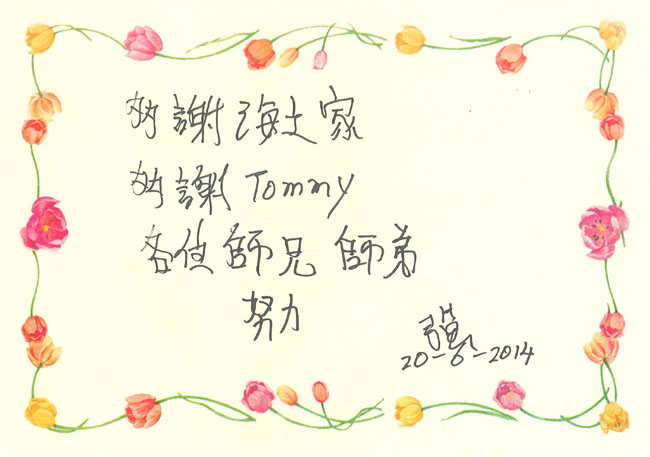 多謝海上家
多謝Tommy
各位師兄師弟
努力
強
20-6-2014